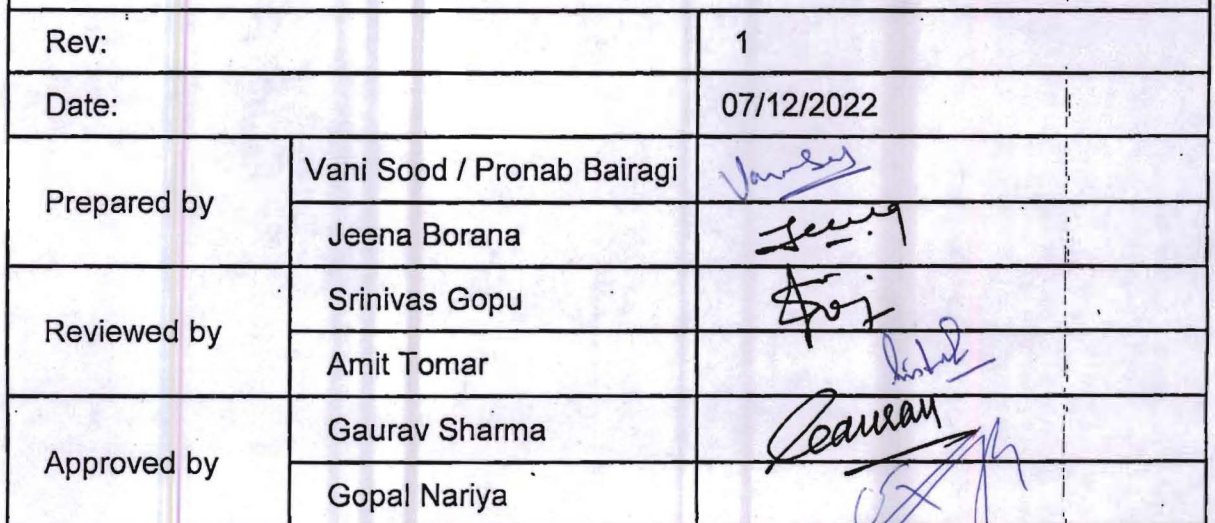 Rev: 1
Date: 07/12/2022
Prepared by
Vani Sood / Pronab Bairagi
Jeena Borana
Reviewed by
Srinivas Gopu
Amit Tomar
Approved by
Gaurav Sharma
Gaurav
Gopal Nariya